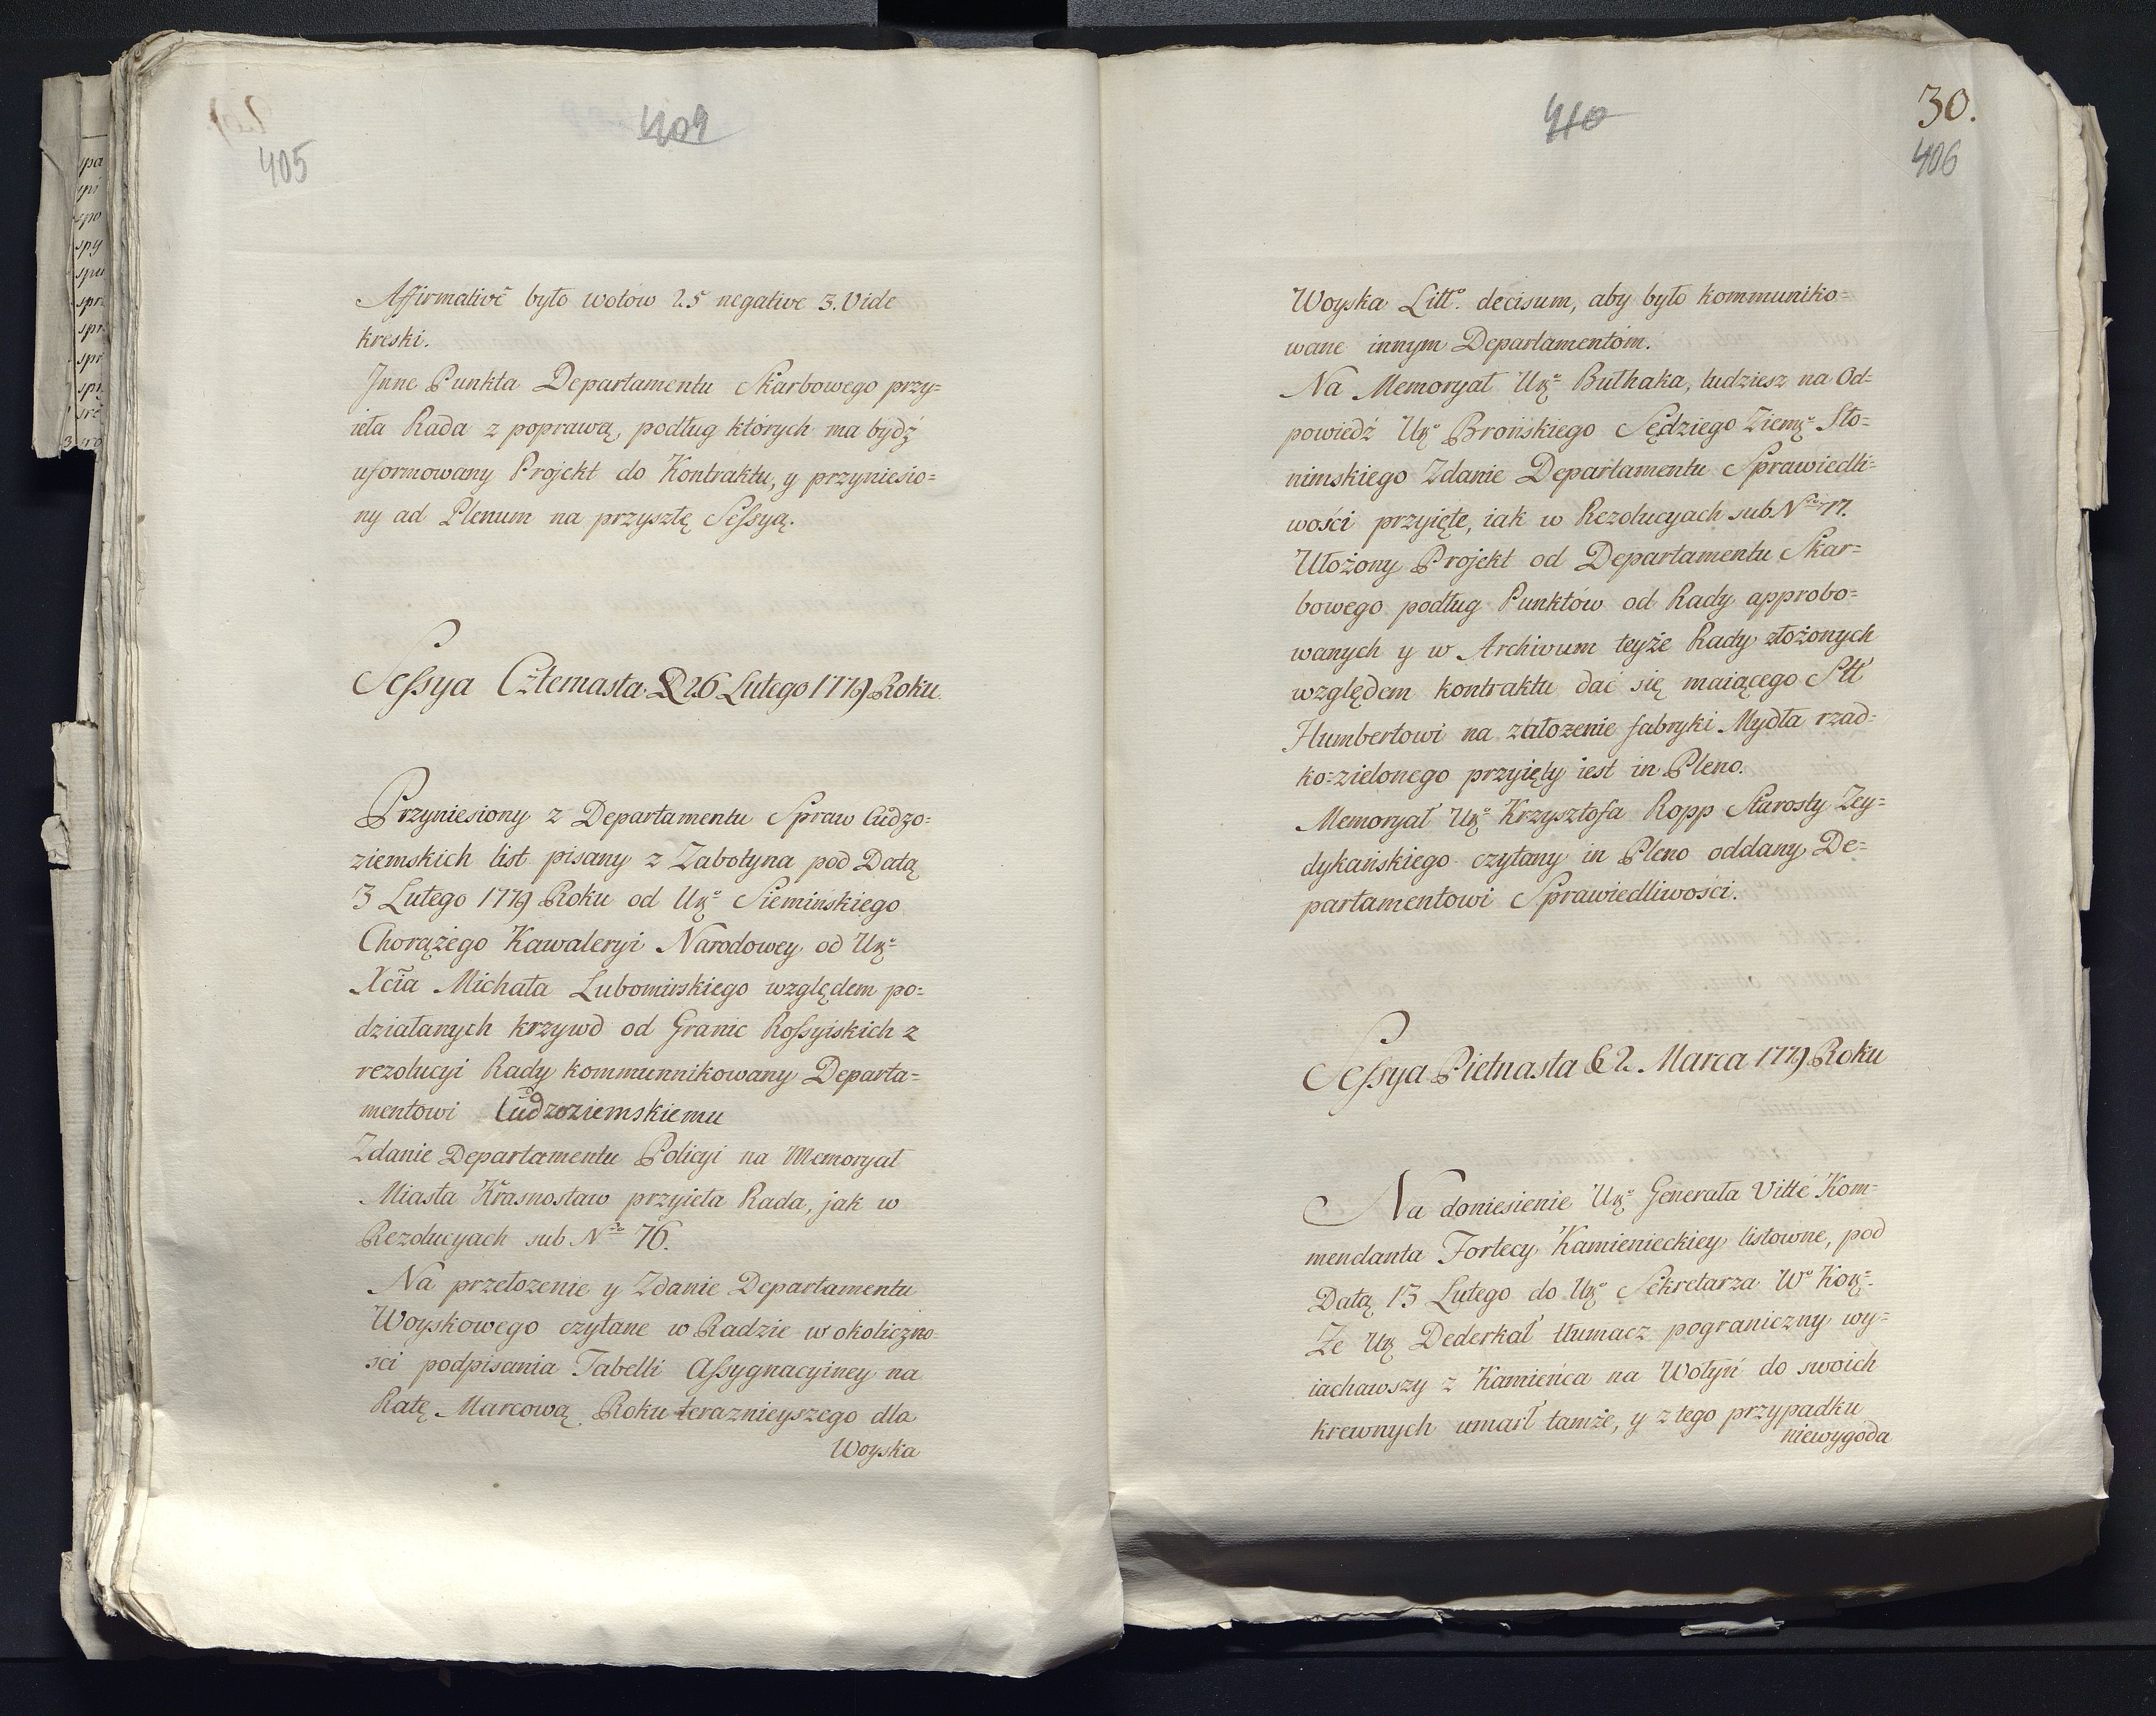 409
405
Affirmativè było wotow 25 negative 3. Vide
kreski.
Jnne Punkta Departamentu Skarbowego przy=
ieła Rada z poprawą, podług ktorych ma bydź
uformowany Projekt do Kontraktu, y przyniesio=
ny ad Plenum na przyszłę Sessyą.
Sessya Czternasta D 26 Lutego 1779 Roku.
Przyniesiony z Departamentu Spraw Cudzo=
ziemskich list pisany z Zabotyna pod Datą
3 Lutego 1779 Roku od Ur̃ꝫº Siemińskiego
Chorążego Kawaleryi Narodowey od Urꝫº
Xcia Michała Lubomirskiego względem po=
działanych krzywd od Granic Rossyiskich z
rezolucyi Rady kommunnikowany Departa=
mentowi Cudzoziemskiemu
Zdanie Departamentu Policyi na Memoryał
Miasta Krasnostaw przyieła Rada, jak w
Rezolucyach sub Nro 76.
Na przełozenie y Zdanie Departamentu
Woyskowego czytane w Radzie w okoliczno=
sci podpisania Tabelli Assygnacyiney na
Ratę Marcową Roku teraznieyszego dla
Woyska
410
30.
406
Woyska Littº. decisum, aby było kommuniko=
wane innym Departamentom.
Na Memoryał Urꝫº Buthaka, tudziesz na Od=
powiedź Urꝫº Brońskiego Sędziego Ziemꝫº Sło=
nimskiego Zdanie Departamentu Sprawiedli=
wości przyięte, iak w Rezolucyach sub Nro 77.
Ułożony Projekt od Departamentu Skar=
bowego podług Punktow od Rady approbo=
wanych y w Archivum teyże Rady złożonych
względem kontraktu dać się maiącego
Humbertowi na załozenie fabryki Mydła rzad=
ko=zielonego przyięty iest in Pleno.
Memoryał Urꝫº Krzysztofa Ropp Starosty Zey=
dykańskiego czytany in Pleno oddany De=
partamentowi Sprawiedliwości.
Sessya Pietnasta D 2 Marca 1779 Roku
Na doniesienie Urꝫº Generała Vitté Kom=
mendanta Fortecy Kamienieckiey listowne, pod
Datą 13 Lutego do Urꝫº Sekretarza Wº Korꝫº
Ze Urꝫ Dederkał tłumacz pograniczny wy=
iachawszy z Kamieńca na Wołyń do swoich
krewnych umarł tamże, y z tego przypadku
niewygoda